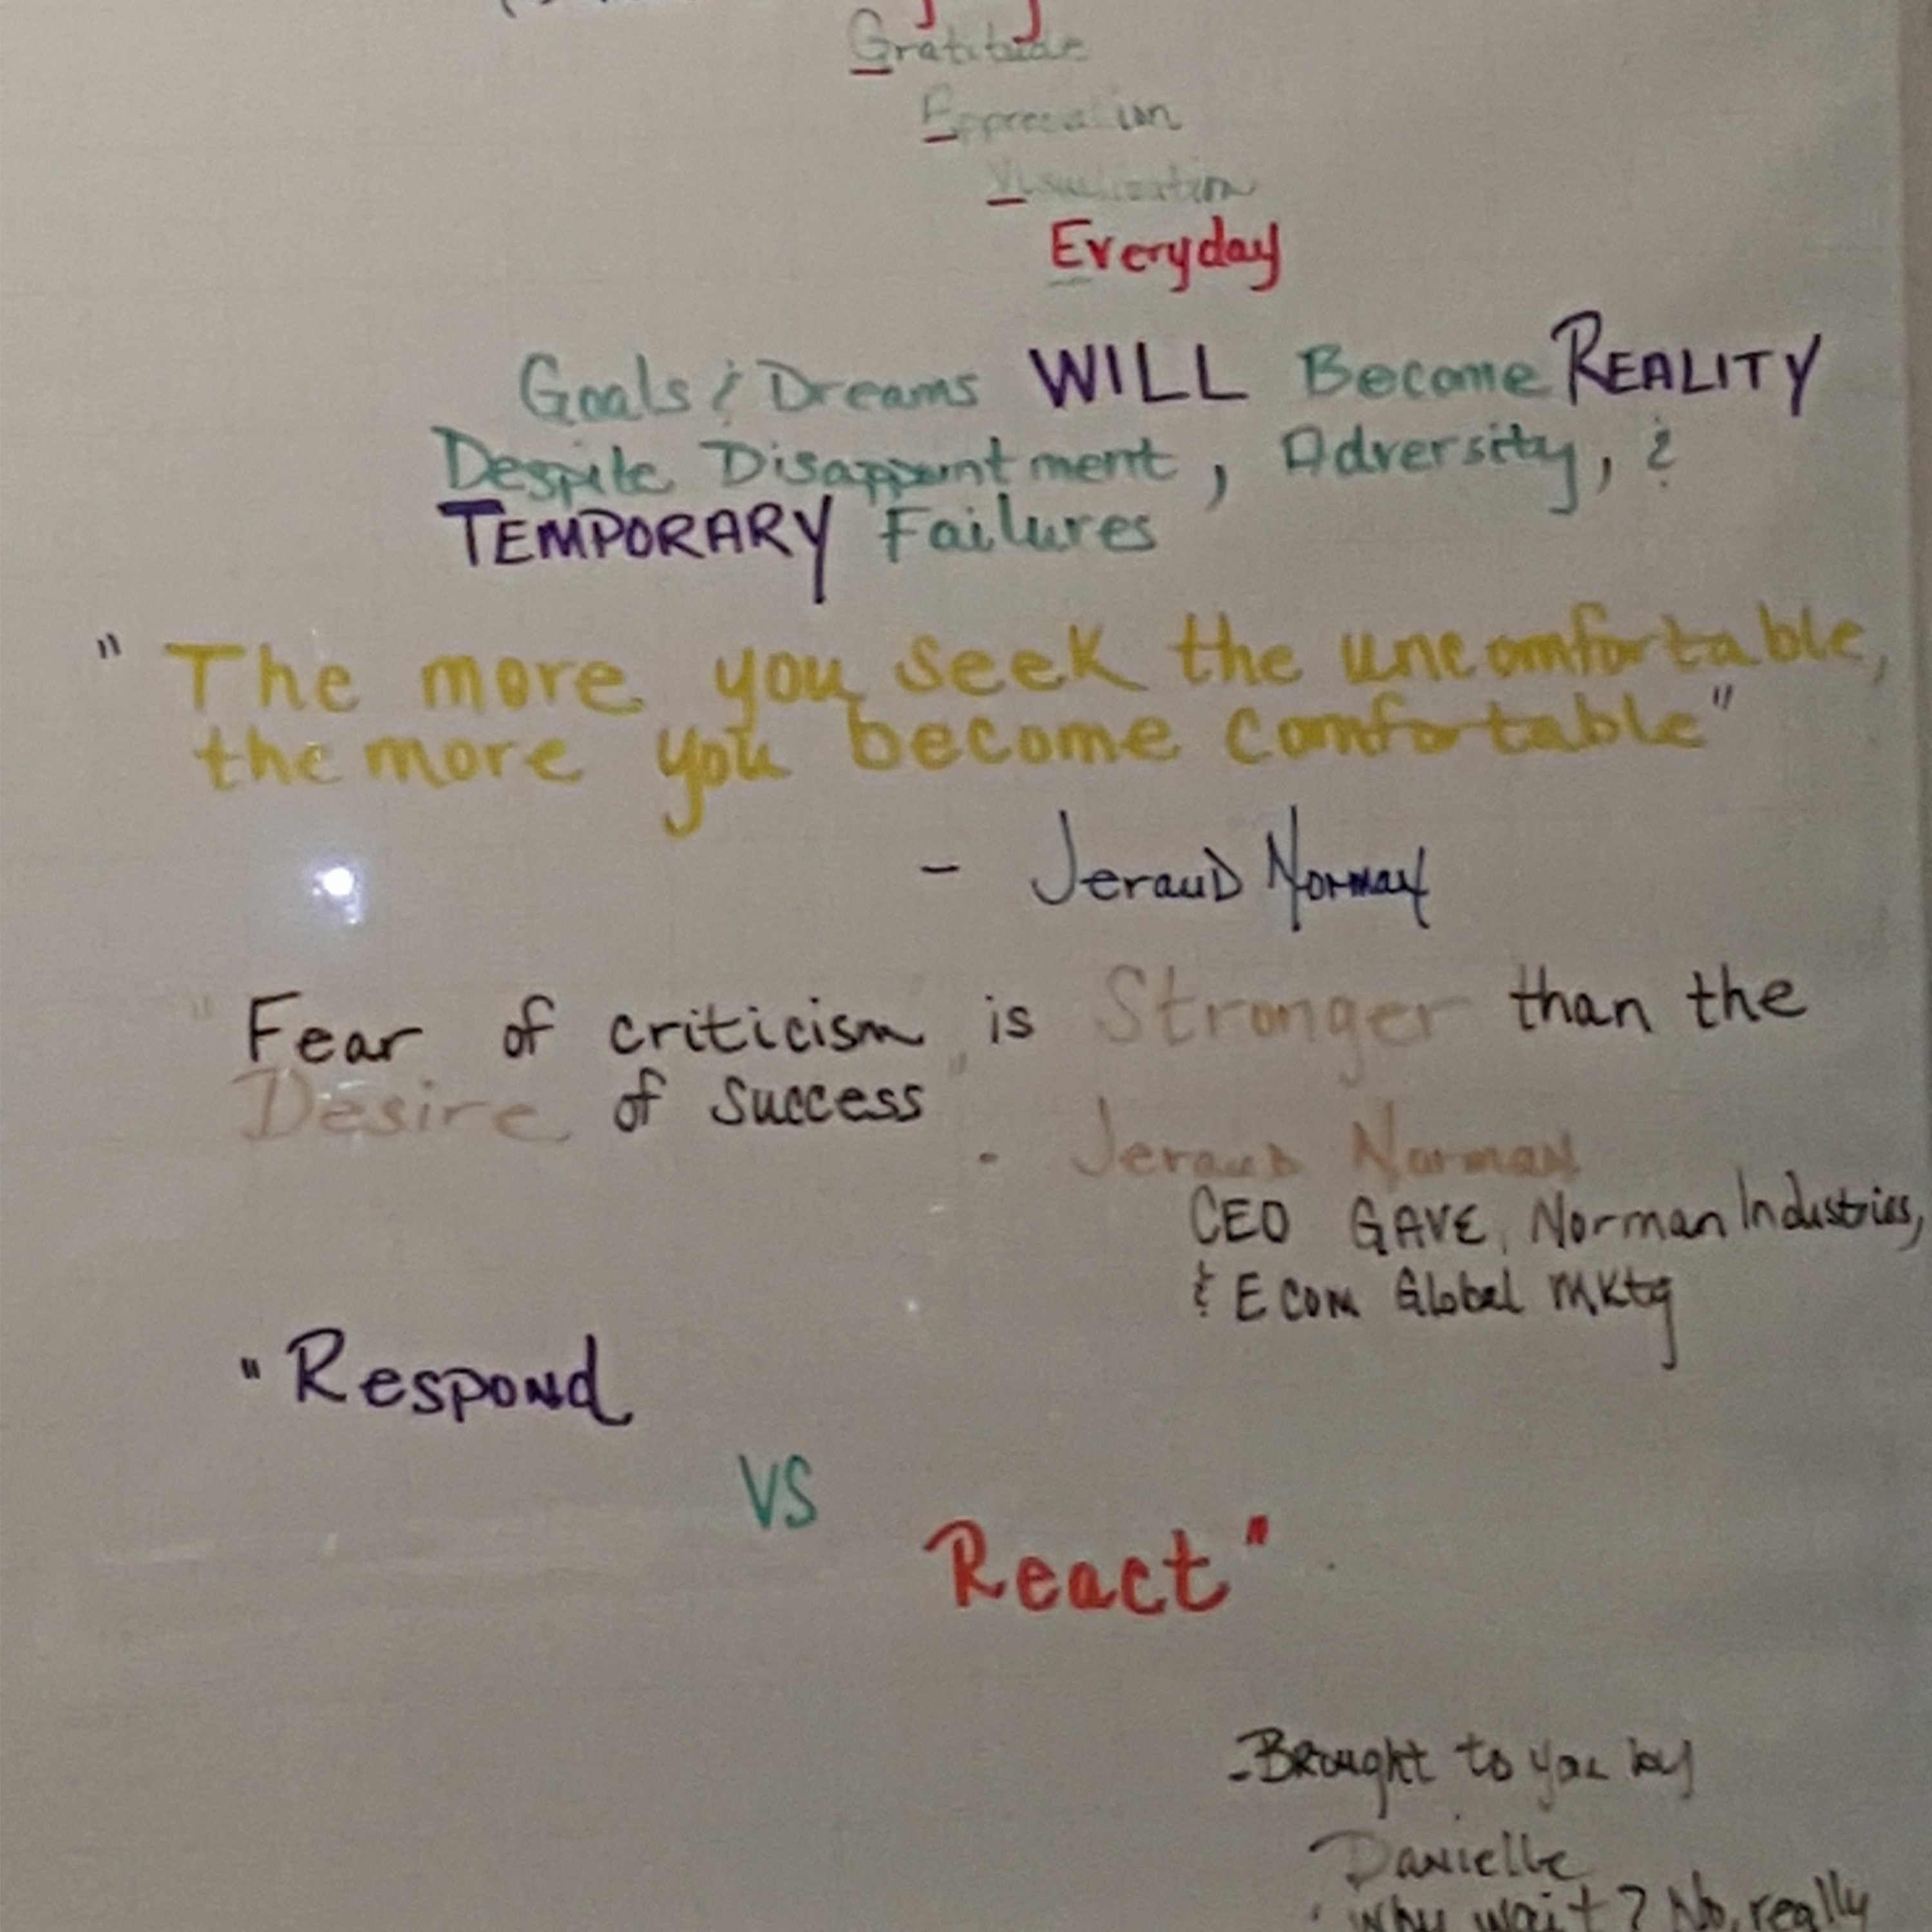 Gratitude
Appreciation
Visualization
Everyday
Goals & Dreams WILL Become REALITY
Despite Disappointment, Adversity, &
TEMPORARY Failures
"The more you seek the uncomfortable,
the more you become comfortable"
- Jeraud Norman
"Fear of criticism is Stronger than the
Desire of Success"
- Jeraud Norman
CEO GAVE, Norman Industries,
& E Com Global Mktg
"Respond
VS
React"
- Brought to you by
Danielle
Why wait? No, really